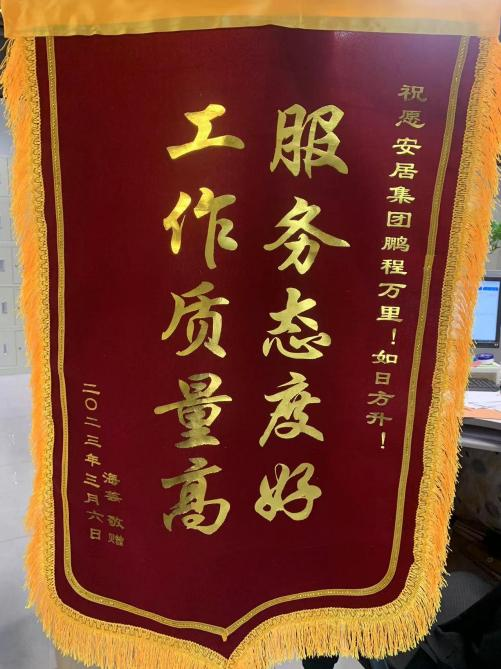 祝愿安居集团鹏程万里！如日方升！
服务态度好
工作质量高
海蓉 敬赠
二〇二三年三月六日